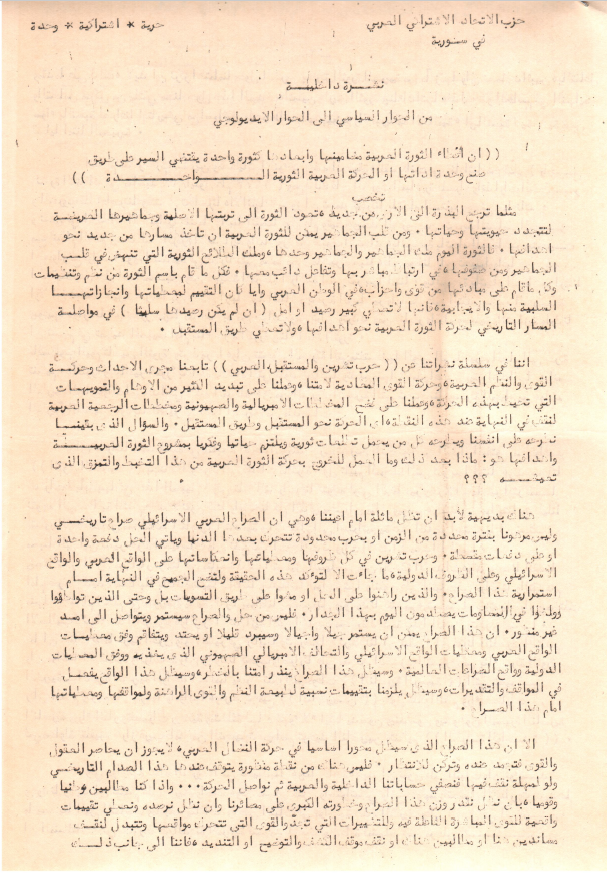 حزب الاتحاد الاشتراكي العربي
في سورية
حرية * اشتراكية * وحدة
نشرة داخلية
من الحوار السياسي الى الحوار الايديولوجي
(( ان اغناء الثورة العربية مضامينها وابعادها كثورة واحدة يقتضي السير على طريق
صنع وحدة اداتها او الحركة العربية الثورية الواحدة ))
تخصب
مثلما ترجع البذرة الى الارض من جديد ، تعود الثورة الى تربتها الاصلية وجماهيرها العريضة
لتتجدد حيويتها وحياتها . ومن قلب الجماهير يمكن للثورة العربية ان تاخذ مسارها من جديد نحو
اهدافها . فالثورة اليوم ملك الجماهير والجماهير وحدها وملك الطلائع الثورية التي تنهض في قلب
الجماهير ومن صفوفها ، في ارتباط مباشر بها وتفاعل دائب معها . فكل ما قام باسم الثورة من نظم وتنظيمات
وكل ماقام على مبادئها من قوى واحزاب ، في الوطن العربي وايا كان التقييم لمعطياتها وانجازاتها
السلبية منها والايجابية ، فانها لاتعطي كبير رصيد او امل ( ان لم يكن رصيدها سلبيا ) في مواصلة
المسار التاريخي لحركة الثورة العربية نحو اهدافها ، ولاتعطي طريق المستقبل .
اننا في سلسلة نشراتنا عن (( حرب تشرين والمستقبل العربي )) تابعنا مجرى الاحداث وحركة
القوى والنظم العربية ، وحركة القوى المعادية لامتنا ، وعملنا على تبديد الكثير من الاوهام والتمويهات
التي تحيط بهذه الحركة ، وعملنا على فضح المخططات الامبريالية والصهيونية ومخططات الرجعية العربية
لنقف في النهاية عند هذه النقطة ، اي الحركة نحو المستقبل وطريق المستقبل . والسؤال الذى يبقى
نطرحه على انفسنا ويطرحه كل من يحمل تطلعات ثورية ويلتزم حياتيا وفكريا بمشروع الثورة العربية
واهدافها هو : ماذا بعد ذلك وما العمل للخروج بحركة الثورة العربية من هذا التخبط والتمزق الذى
تعيشه ؟؟؟
هناك بديهية لابد ان تظل ماثلة امام اعيننا ، وهي ان الصراع العربي الاسرائيلي صراع تاريخي
وليس مرهونا بفترة محددة من الزمن او بحرب محدودة تتحرك بعدها الدنيا وياتي الحل دفعة واحدة
او على دفعات متصلة . وحرب تشرين في كل ظروفها ومعطياتها وانعكاساتها على الواقع العربي والواقع
الاسرائيلي وعلى الظروف الدولية ، ما جاءت الا لتؤكد هذه الحقيقة ولتضع الجميع في النهاية امام
استمرارية هذا الصراع . والذين راهنوا على الحل او مشوا على طريق التسويات بل وحتى الذين تواطؤوا
وولغوا في المساومات يصطدمون اليوم بهذا الجدار . فليس من حل والصراع سيستمر ويتواصل الى امد
غير منظور . ان هذا الصراع يمكن ان يستمر جيلا واجيالا وسيبرد قليلا او يحتد ويتفاقم وفق معطيات
الواقع العربي ومعطيات الواقع الاسرائيلي والتحالف الامبريالي الصهيوني الذى يغذيه ووفق المعطيات
الدولية وواقع الصراعات العالمية . وسيظل هذا الصراع ينذر امتنا بالخطر ، وسيظل هذا الواقع يفعل
في المواقف والتقديرات ، وسيظل يلزمنا بتقييمات نسبية لطبيعة النظم والقوى الراهنة ولمواقفها ومعطياتها
امام هذا الصراع .
الا ان هذا الصراع الذى سيظل محورا اساسيا في حركة النضال العربي ، لايجوز ان يحاصر العقول
والقوى فتجمد عنده وتركن للانتظار . فليس هناك من نقطة منظورة يتوقف عندها هذا الصدام التاريخي
ولو لمهلة نقف فيها فنصفي حساباتنا الداخلية والعربية ثم نواصل الحركة ... واذا كنا مطالبين وطنيا
وقوميا ، بان نظل نقدر وزن هذا الصراع وخطورته الكبرى على مصائرنا وان نظل نرصده ونعطي تقييمات
واقعية للقوى المباشرة الفاعلة فيه وللتغييرات التي تجد والقوى التى تتحرك مواقعها وتتبدل لنقف
مساندين هنا او مطالبين هناك او نقف موقف الكشف والتوضيح او التنديد ، فاننا الى جانب ذلك